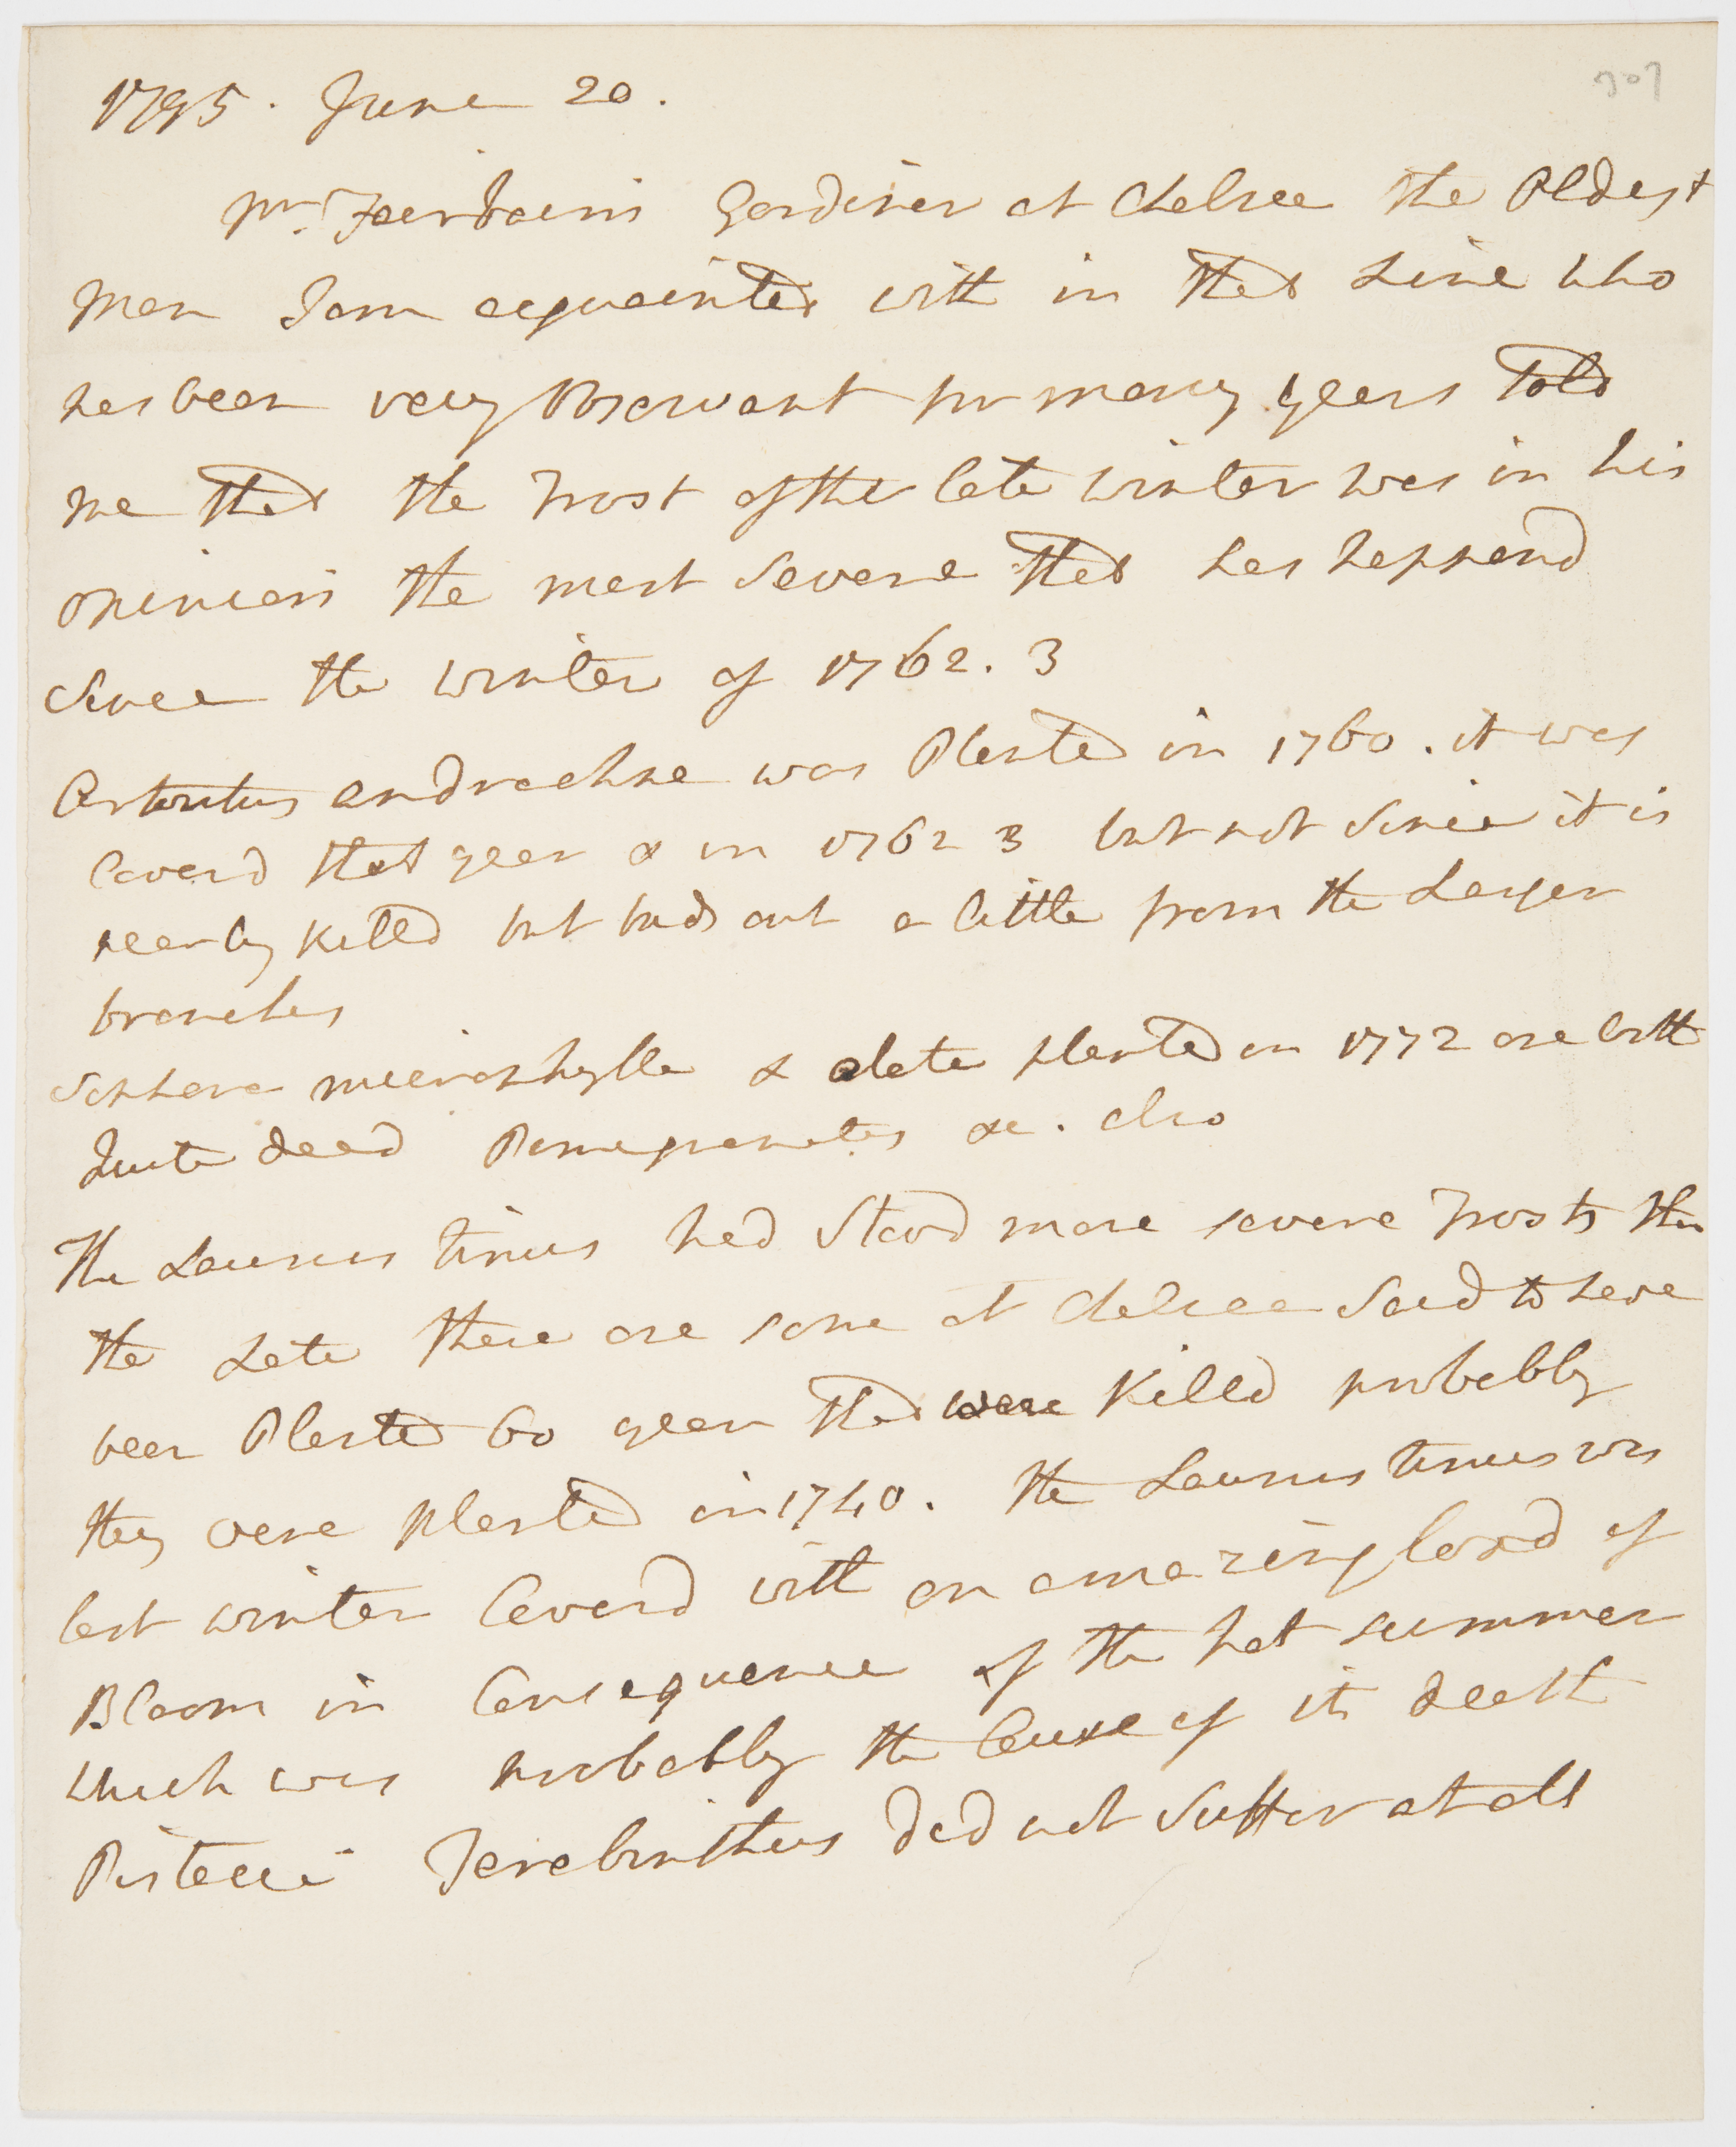 1795. June 20.
Mr. Fairbairn Gardiner at Chelsea the Oldest
Man I am acquainted with in that Line who
has been very Observant for many years told
me that the Frost of the late winter was in his
opinion the most severe that has happend
since the winter of 1762.3
Arbutus andrachne was Planted in 1760. it was
Coverd that year & in 1762 3 but not since it is
nearly killd but buds out a little from the Larger
branches
Sophora microphylla & alata planted in 1772 are both
Quite dead Pomegranates &c. also
The Laurus tinus had stood more severe Frosts than
the Late there are some at Chelsea Said to have
been Planted 60 year that were Killd probably
they were planted in 1740. the Laurus tinus was
last winter Coverd with an amazing load of
Bloom in Consequence of the hot summer
which was probably the Cause of its death
Pistacia Terebinthus did not suffer at all